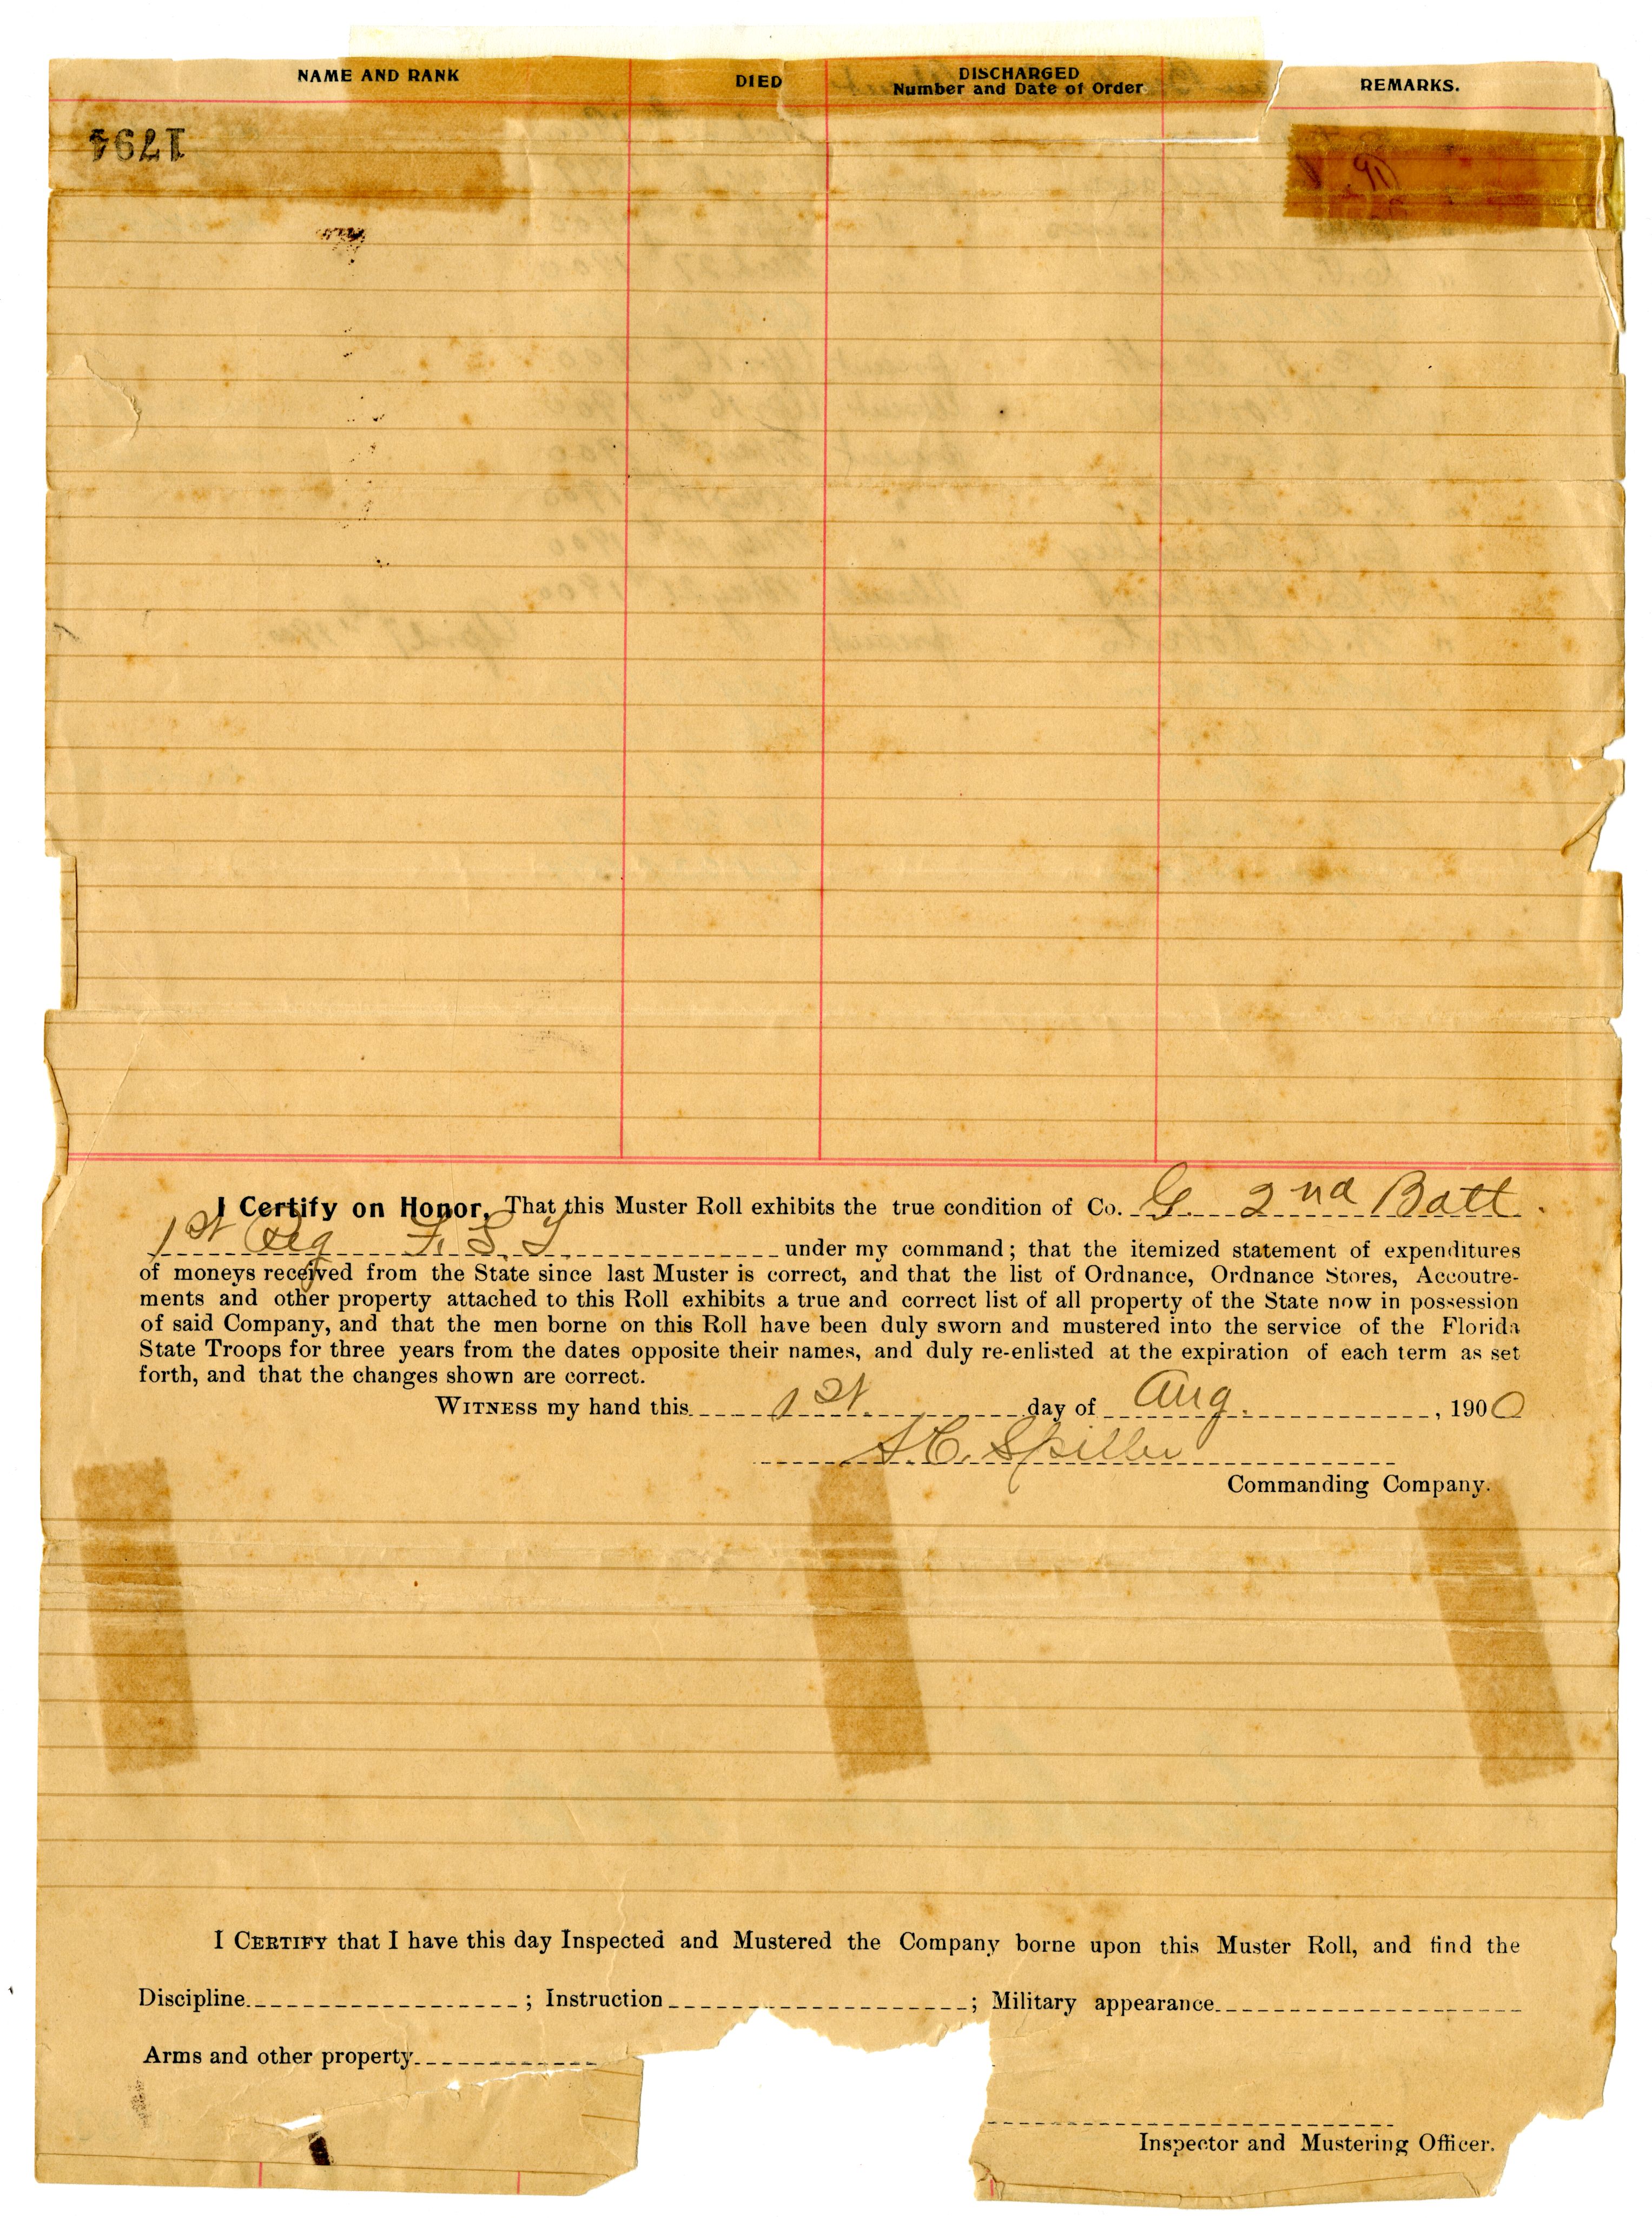 NAME AND RANK DIED DISCHARGED REMARKS.
Number and Date of Order
1794
I Certify on Honor, That this Muster Roll exhibits the true condition of Co. G. 2nd Batt.
1st Reg F. S. T. under my command; that the itemized statement of expenditures
of moneys received from the State since last Muster is correct, and that the list of Ordnance, Ordnance Stores, Accoutre-
ments and other property attached to this Roll exhibits a true and correct list of all property of the State now in possession
of said Company, and that the men borne on this Roll have been duly sworn and mustered into the service of the Florida
State Troops for three years from the dates opposite their names, and duly re-enlisted at the expiration of each term as set
forth, and that the changes shown are correct.
WITNESS my hand this 1st day of Aug. , 1900
Commanding Company.
I CERTIFY that I have this day Inspected and Mustered the Company borne upon this Muster Roll, and find the
Discipline ; Instruction ; Military appearance
Arms and other property
Inspector and Mustering Officer.